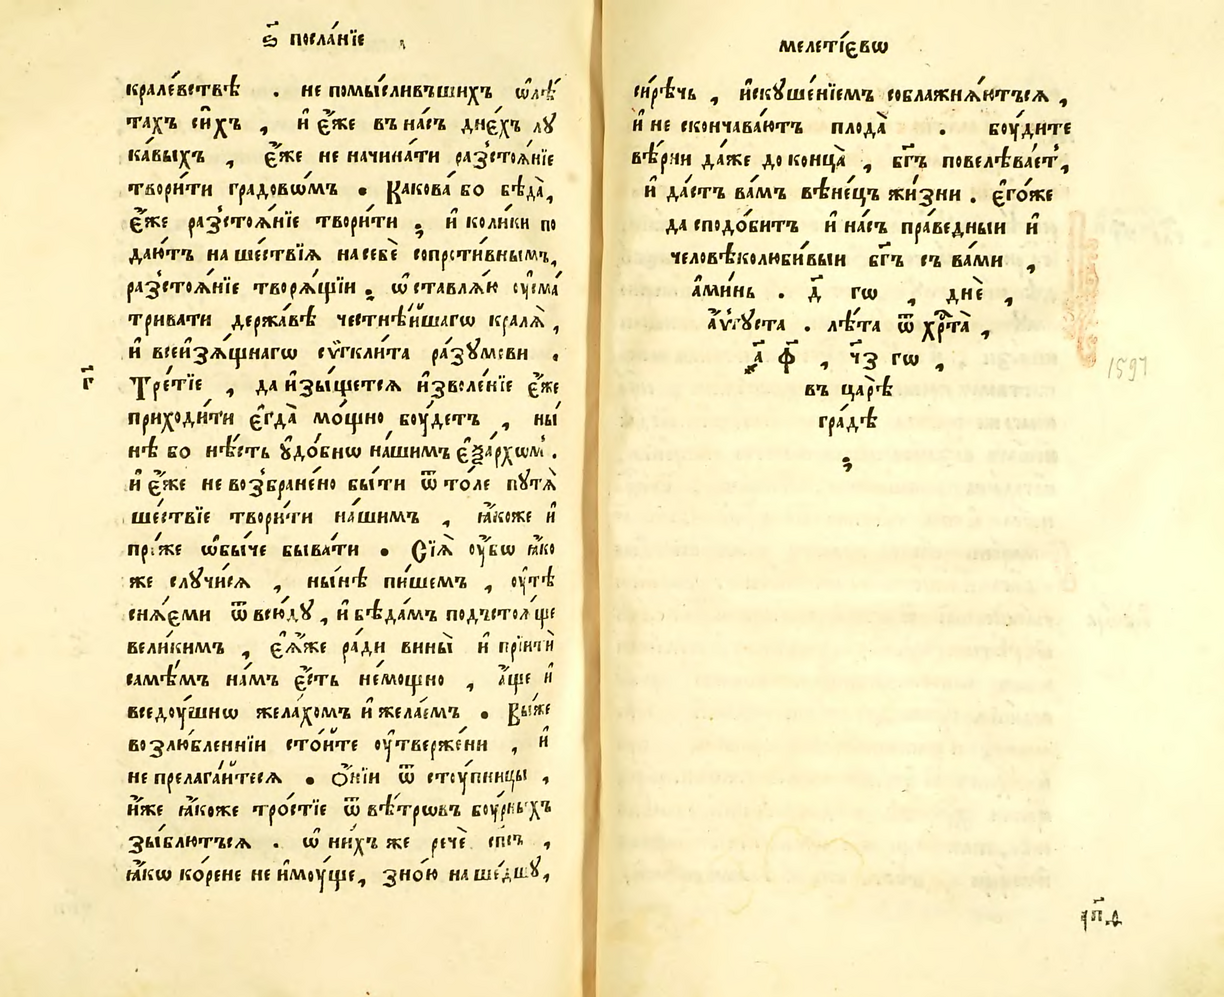 ѕ҃ посла́нїе
кралевствѣ . не помы́сливъшихъ ѡ҆лѣ́
тахъ си́хъ , и҆ є҆́же въ на́съ дне́хъ лꙋ
ка́выхъ , є҆́же не начина́ти раз̾стоѧ́нїе
твори́ти градовѡ́мъ . Какова́ бо бѣда̀,
є҆́же раз̾стоѧ́нїе твори́ти ; и҆ коли́ки по
даю́тъ на ше́ствїѧ на себѐ сопрѡти́внымъ,
раз̾стоѧ́нїе творѧ́щїи . ѡ҆ставлѧ́ю оу҆сма́
тривати держа́вѣ честнѣ́йшагѡ кралѧ̀ ,
и҆ всеи҆зѧ́щнагѡ сѵ́гклита ра́зꙋмови .
г҃
Тре́тїе , да и҆зы́щетсѧ и҆зволе́нїе є҆́же
приходи́ти є҆гда̀ мо́щно боу́детъ , ны́
нѣ бо нѣ́сть ᲂу҆до́бнѡ на́шимъ є҆ѯа́рхѡмъ .
и҆ є҆́же не воз̾бране́но бы́ти ѿ то́ле пꙋтѧ̀
ше́ствїе твори́ти на́шимъ , ꙗ҆́коже и҆
пре́же ѡ҆бы́че быва́ти . Сїѧ̀ оу҆́бѡ ꙗ҆́ко
же слꙋчи́сѧ , ны́нѣ пи́шемъ , оу҆тѣ
снѧ́еми ѿ всю́дꙋ , и҆ бѣда́мъ подъстоѧ́ще
вели́кимъ , є҆ѧ҆́же ра́ди вины̀ и҆ прїитѝ
самѣ́мъ на́мъ є҆́сть не́мощно , а҆́ще и҆
вседоу́шнѡ жела́хомъ и҆ жела́емъ . Вы́же
возлю́бленнїи сто́йте оу҆тверже́ни , и҆
не прелага́йтесѧ . Ѻ҆́нїи ѿ стоу́пницы ,
и҆́же ꙗ҆́коже тро́стїе ѿ вѣ́трѡвъ боу́рныхъ
зы́блютъсѧ . ѡ҆ ни́хъ же речѐ сп҃съ ,
ꙗ҆́кѡ ко́рене не и҆моу́ще, зно́ю на ше́дшꙋ,
мелеті́евѡ
си́рѣчь , и҆скꙋше́нїемъ соблажнѧ́ютъсѧ ,
и҆ не скончава́ютъ плода̀ . боу́дите
вѣ́рни да́же до конца̀ , бг҃ъ повелѣва́етъ,
и҆ да́стъ ва́мъ вѣне́цъ жи́зни . є҆го́же
да сподо́битъ и҆ на́съ пра́ведныи и҆
человѣколюби́выи бг҃ъ съ ва́ми ,
а҆ми́нь . д҃ гѡ , днѐ ,
а҆́ѵгꙋста . лѣ́та ѿ хрⷭ҇та̀ ,
҂а҃ ф҃ , ч҃з гѡ ,
въ ца́рѣ
гра́дѣ
;
1597